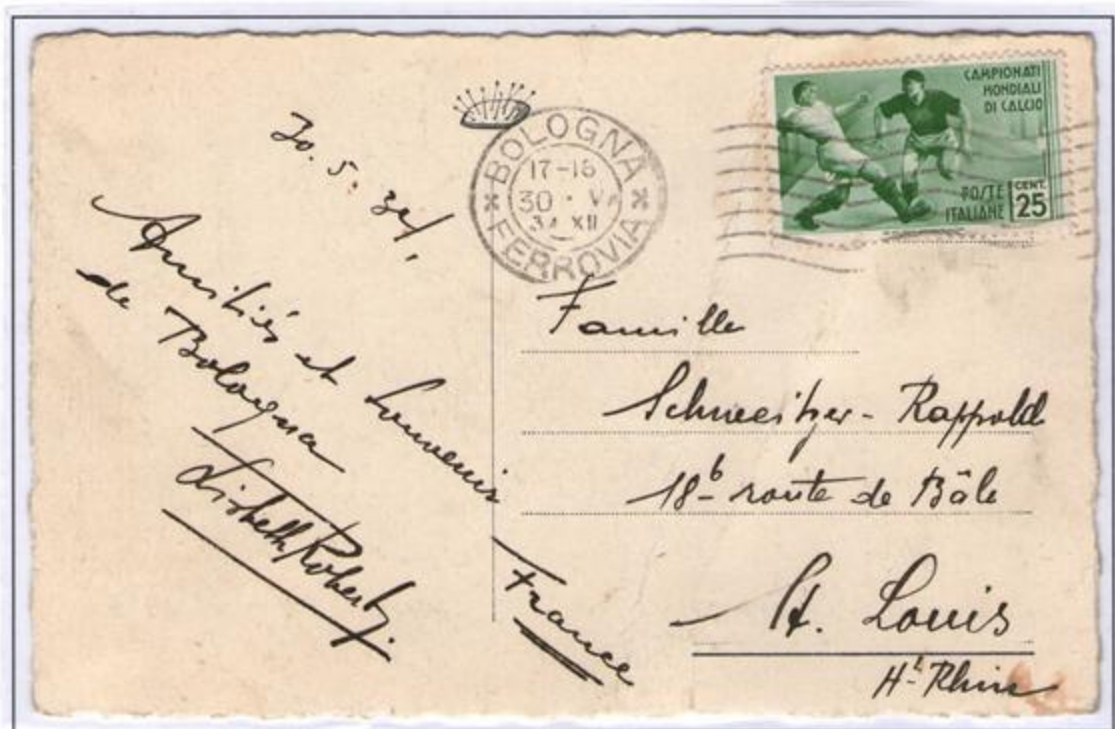 30. 5. 34.
Amitiés et Souvenirs
de Bologna
Lisbeth Robert.
BOLOGNA
17-18
30 · V
34 XII
FERROVIA
CAMPIONATI
MONDIALI
DI CALCIO
POSTE
ITALIANE
CENT.
25
Famille
Schweitzer - Rappold
18b route de Bâle
St. Louis
Ht Rhin
France